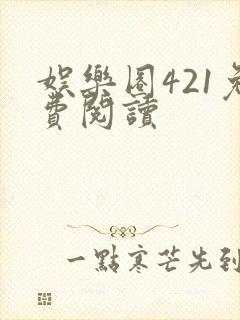 娛樂圈421免
費閱讀
一點寒芒先到